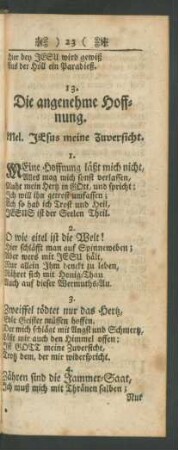 ) 23 (
Nur bey JESU wird gewiß
Aus der Höll ein Paradieß.
13.
Die angenehme Hoff-
nung.
Mel. JEsus meine Zuversicht.
1.
MEine Hoffnung läßt mich nicht,
Alles mag mich sonst verlassen,
Ruht mein Hertz in GOtt, und spricht:
Ich will ihn getrost umfassen;
Ich so hab ich Trost und Heil,
JESUS ist der Seelen Theil.
2.
O wie eitel ist die Welt!
Hier schläfft man auf Spinneweben;
Aber wers mit JESU hält,
Nur allein Ihm denckt zu leben,
Nähret sich mit Honig-Thau
Auch auf dieser Wermuths-Au.
3.
Zweiffel tödtet nur das Hertz,
Eitle Geister müssen hoffen.
Der mich schlägt mit Angst und Schmertz,
Läßt mir auch den Himmel offen:
Ist GOTT meine Zuversicht,
Trutz dem, der mir widerspricht.
4.
Zähren sind die Jammer-Saat,
Ich muß mich mit Thränen salben;
Nur